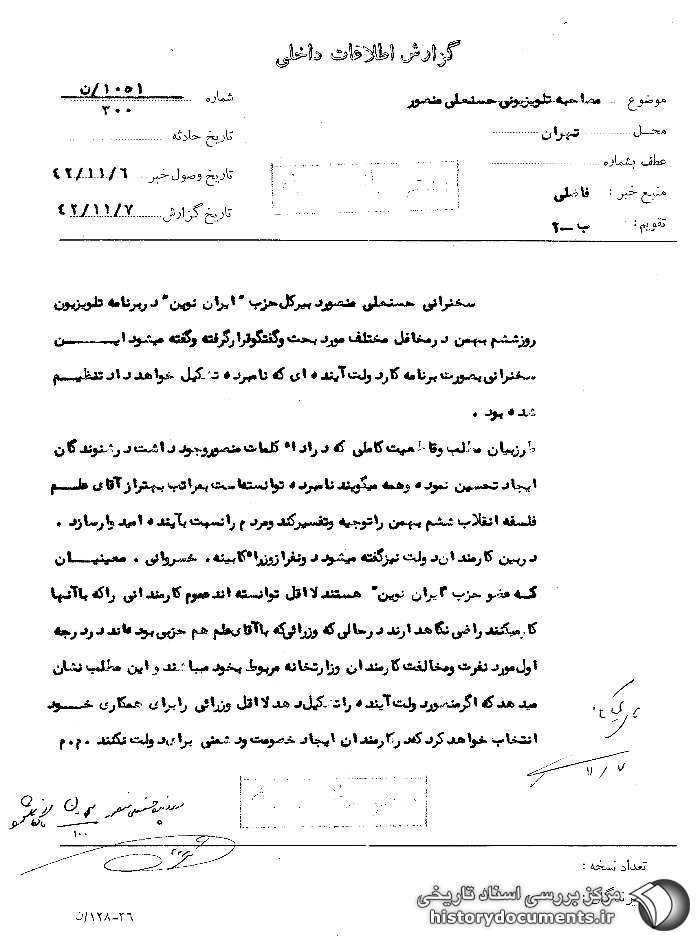 گزارش اطلاعات داخلی
موضوع ... مصاحبه تلویزیونی حسنعلی منصور
محل ... تهران
عطف بشماره
منبع خبر : فاضلی
تقویم : ب-۲
شماره ۱۰۵۱/ن
۳۰۰
تاریخ حادثه
تاریخ وصول خبر ۴۲/۱۱/۶
تاریخ گزارش ۴۲/۱۱/۷
سخنرانی حسنعلی منصور دبیر کل حزب "ایران نوین" در برنامه تلویزیون
روز ششم بهمن در محافل مختلف مورد بحث و گفتگو قرار گرفته و گفته میشود ایــن
سخنرانی بصورت برنامه کار دولت آینده ای که نامبرده تشکیل خواهد داد تنظیم
شده بود .
طرز بیان مطلب و قاطعیت کاملی که در اداء کلمات منصور وجود داشت در شنوندگان
ایجاد تحسین نموده و همه میگویند نامبرده توانسته است بمراتب بهتر از آقای علــم
فلسفه انقلاب ششم بهمن را توجیه و تفسیر کند و مردم را نسبت بآینده امیدوار سازد .
در بین کارمندان دولت نیز گفته میشود دو نفر از وزراء کابینه . خسروانی . معینیــان
کــه عضو حزب "ایران نوین" هستند لااقل توانسته اند عموم کارمندانی را که با آنها
کار میکنند راضی نگاهدارند در حالی که وزرائی که با آقای علم هم حزبی بوده اند در درجه
اول مورد نفرت و مخالفت کارمندان وزارتخانه مربوط بخود میباشند و این مطلب نشان
میدهد که اگر منصور دولت آینده را تشکیل دهد لااقل وزرائی را برای همکاری خــود
انتخاب خواهد کرد که در کارمندان ایجاد خصومت و دشمنی برای دولت نکنند . م.م
۱۱/۷
۱۰۰
تعداد نسخه :
۱۲۸-۲۶/ن
مرکز بررسی اسناد تاریخی
historydocuments.ir